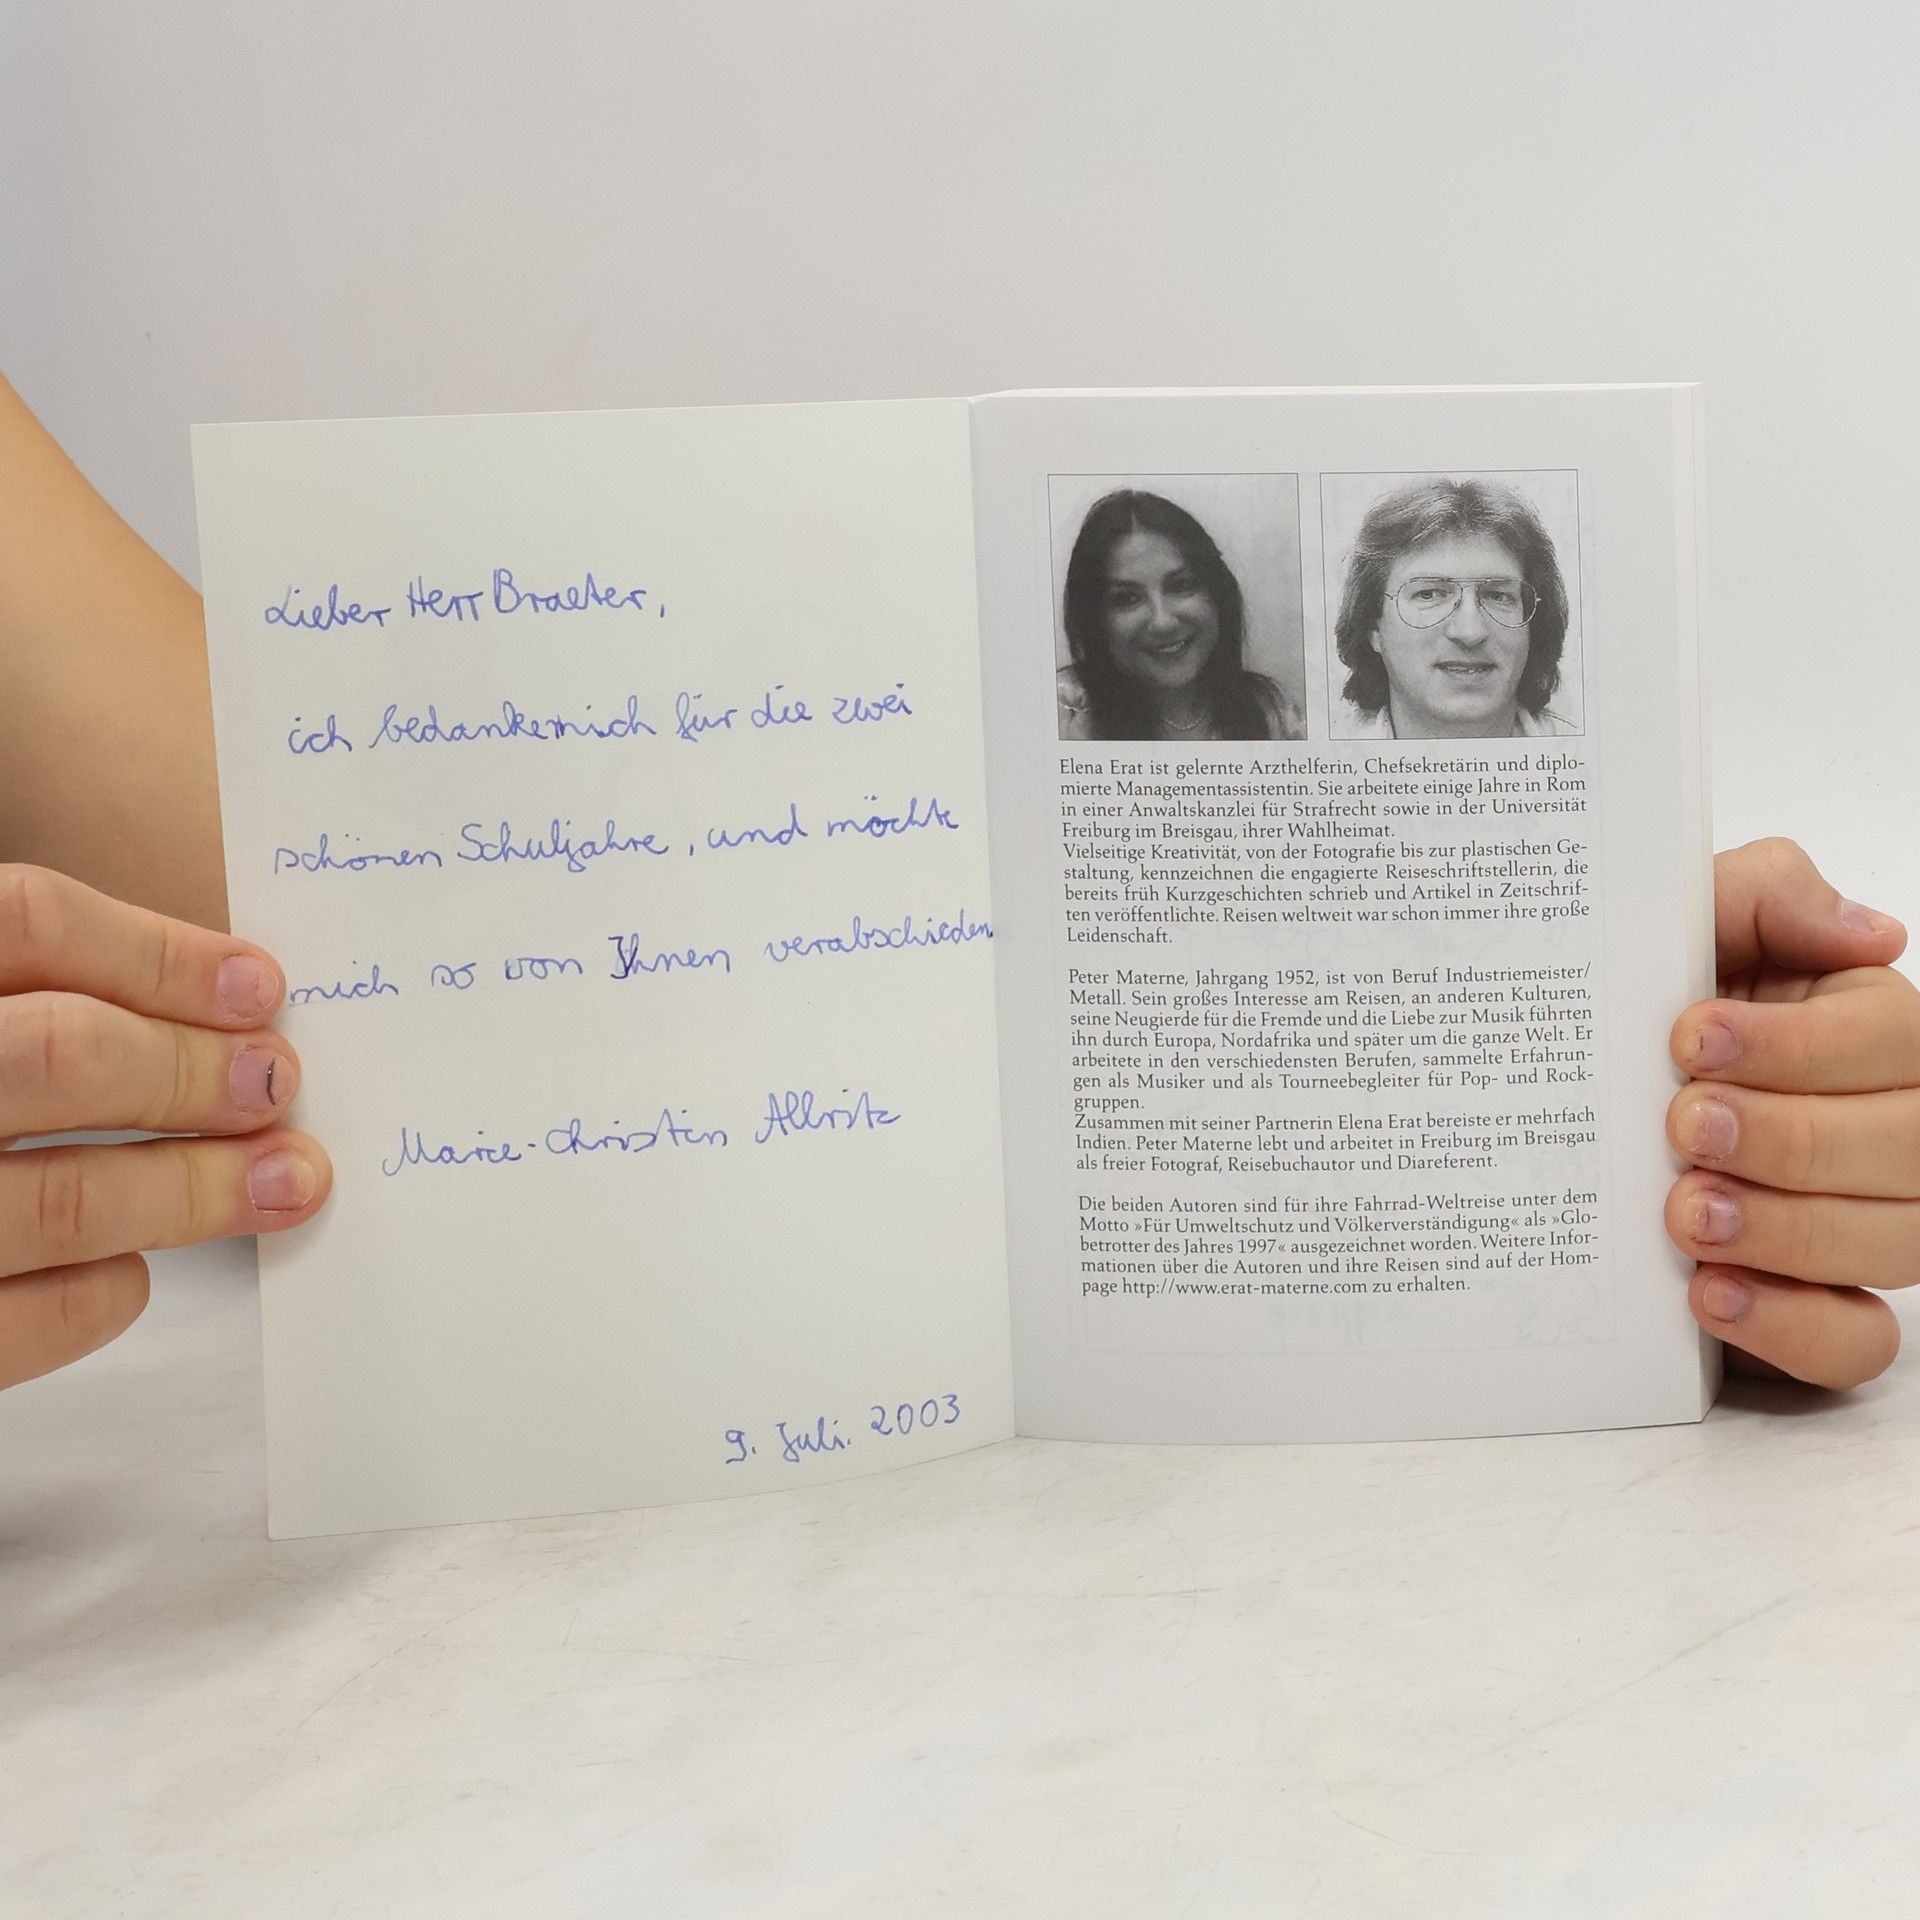 Lieber Herr Braeter,
ich bedanke mich für die zwei
schönen Schuljahre, und möchte
mich so von Ihnen verabschieden.
Marie-Christin Allritz
9. Juli. 2003
Elena Erat ist gelernte Arzthelferin, Chefsekretärin und diplo-
mierte Managementassistentin. Sie arbeitete einige Jahre in Rom
in einer Anwaltskanzlei für Strafrecht sowie in der Universität
Freiburg im Breisgau, ihrer Wahlheimat.
Vielseitige Kreativität, von der Fotografie bis zur plastischen Ge-
staltung, kennzeichnen die engagierte Reiseschriftstellerin, die
bereits früh Kurzgeschichten schrieb und Artikel in Zeitschrif-
ten veröffentlichte. Reisen weltweit war schon immer ihre große
Leidenschaft.
Peter Materne, Jahrgang 1952, ist von Beruf Industriemeister/
Metall. Sein großes Interesse am Reisen, an anderen Kulturen,
seine Neugierde für die Fremde und die Liebe zur Musik führten
ihn durch Europa, Nordafrika und später um die ganze Welt. Er
arbeitete in den verschiedensten Berufen, sammelte Erfahrun-
gen als Musiker und als Tourneebegleiter für Pop- und Rock-
gruppen.
Zusammen mit seiner Partnerin Elena Erat bereiste er mehrfach
Indien. Peter Materne lebt und arbeitet in Freiburg im Breisgau
als freier Fotograf, Reisebuchautor und Diareferent.
Die beiden Autoren sind für ihre Fahrrad-Weltreise unter dem
Motto »Für Umweltschutz und Völkerverständigung« als »Glo-
betrotter des Jahres 1997« ausgezeichnet worden. Weitere Infor-
mationen über die Autoren und ihre Reisen sind auf der Hom-
page http://www.erat-materne.com zu erhalten.